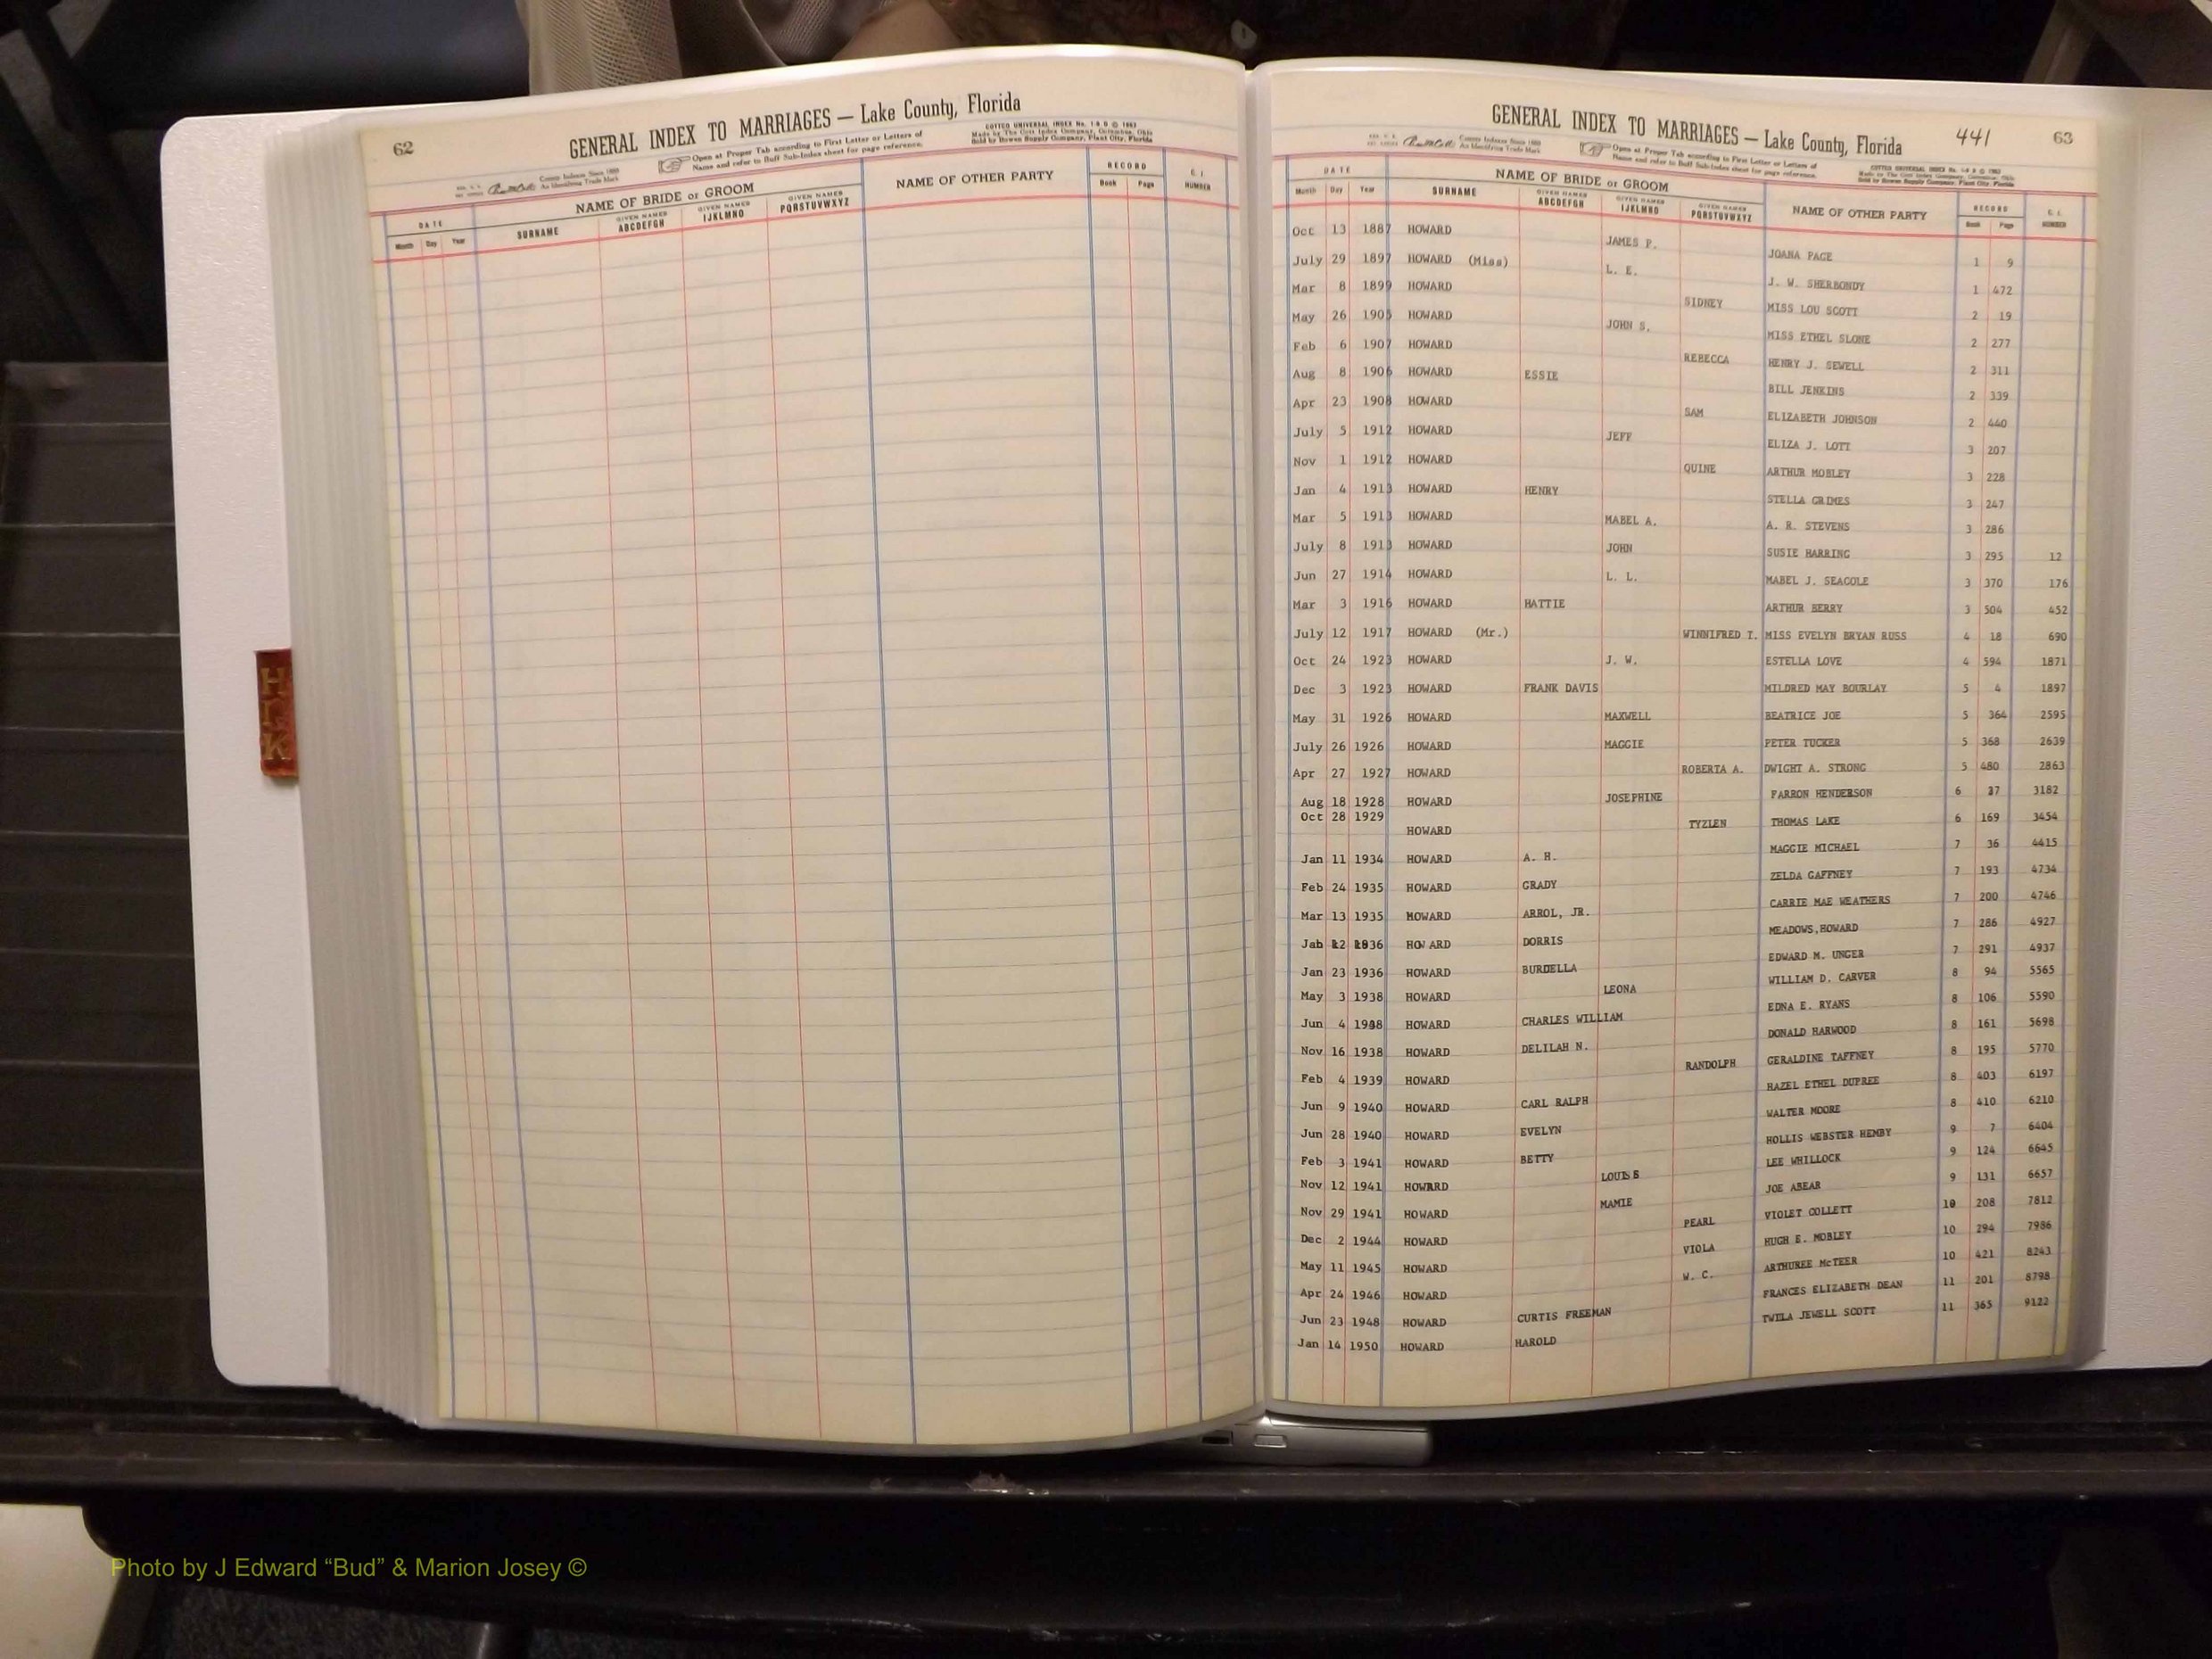 62
GENERAL INDEX TO MARRIAGES — Lake County, Florida
Open at Proper Tab according to First Letter or Letters of
Name and refer to Buff Sub-Index sheet for page reference.
COTTCO UNIVERSAL INDEX No.
Made by The Cott Index Company, Columbus, Ohio
Sold by Bowen Supply Company, Plant City, Florida
County Indexes Since 1888
An Identifying Trade Mark
DATE NAME OF BRIDE or GROOM NAME OF OTHER PARTY RECORD C. I. NUMBER
Month Day Year SURNAME GIVEN NAMES ABCDEFGH GIVEN NAMES IJKLMNO GIVEN NAMES PQRSTUVWXYZ Book Page
H I K
GENERAL INDEX TO MARRIAGES — Lake County, Florida 441 63
County Indexes Since 1888
An Identifying Trade Mark
Open at Proper Tab according to First Letter or Letters of
Name and refer to Buff Sub-Index sheet for page reference.
COTTCO UNIVERSAL INDEX No.
Made by The Cott Index Company, Columbus, Ohio
Sold by Bowen Supply Company, Plant City, Florida
DATE NAME OF BRIDE or GROOM NAME OF OTHER PARTY RECORD C. I. NUMBER
Month Day Year SURNAME GIVEN NAMES ABCDEFGH GIVEN NAMES IJKLMNO GIVEN NAMES PQRSTUVWXYZ Book Page
Oct 13 1887 HOWARD JAMES P. JOANA PAGE 1 9
July 29 1897 HOWARD (Miss) L. E. J. W. SHERBONDY 1 472
Mar 8 1899 HOWARD SIDNEY MISS LOU SCOTT 2 19
May 26 1905 HOWARD JOHN S. MISS ETHEL SLONE 2 277
Feb 6 1907 HOWARD REBECCA HENRY J. SEWELL 2 311
Aug 8 1906 HOWARD ESSIE BILL JENKINS 2 339
Apr 23 1908 HOWARD SAM ELIZABETH JOHNSON 2 440
July 5 1912 HOWARD JEFF ELIZA J. LOTT 3 207
Nov 1 1912 HOWARD QUINE ARTHUR MOBLEY 3 228
Jan 4 1913 HOWARD HENRY STELLA GRIMES 3 247
Mar 5 1913 HOWARD MABEL A. A. R. STEVENS 3 286
July 8 1913 HOWARD JOHN SUSIE HARRING 3 295 12
Jun 27 1914 HOWARD L. L. MABEL J. SEAGOLE 3 370 176
Mar 3 1916 HOWARD HATTIE ARTHUR BERRY 3 504 452
July 12 1917 HOWARD (Mr.) WINNIFRED T. MISS EVELYN BRYAN RUSS 4 18 690
Oct 24 1923 HOWARD J. W. ESTELLA LOVE 4 594 1871
Dec 3 1923 HOWARD FRANK DAVIS MILDRED MAY BOURLAY 5 4 1897
May 31 1926 HOWARD MAXWELL BEATRICE JOE 5 364 2595
July 26 1926 HOWARD MAGGIE PETER TUCKER 5 368 2639
Apr 27 1927 HOWARD ROBERTA A. DWIGHT A. STRONG 5 480 2863
Aug 18 1928 HOWARD JOSEPHINE FARRON HENDERSON 6 37 3182
Oct 28 1929 HOWARD TYZLEN THOMAS LAKE 6 169 3454
Jan 11 1934 HOWARD A. H. MAGGIE MICHAEL 7 36 4415
Feb 24 1935 HOWARD GRADY ZELDA GAFFNEY 7 193 4734
Mar 13 1935 HOWARD ARROL, JR. CARRIE MAE WEATHERS 7 200 4746
Jab 12 1936 HOW ARD DORRIS MEADOWS,HOWARD 7 286 4927
Jan 23 1936 HOWARD BURDELLA EDWARD M. UNGER 7 291 4937
May 3 1938 HOWARD LEONA WILLIAM D. CARVER 8 94 5565
Jun 4 1938 HOWARD CHARLES WILLIAM EDNA E. RYANS 8 106 5590
Nov 16 1938 HOWARD DELILAH N. DONALD HARWOOD 8 161 5698
Feb 4 1939 HOWARD RANDOLPH GERALDINE TAFFNEY 8 195 5770
Jun 9 1940 HOWARD CARL RALPH HAZEL ETHEL DUPREE 8 403 6197
Jun 28 1940 HOWARD EVELYN WALTER MOORE 8 410 6210
Feb 3 1941 HOWARD BETTY HOLLIS WEBSTER HEMBY 9 7 6404
Nov 12 1941 HOWARD LOUISE LEE WHILLOCK 9 124 6645
Nov 29 1941 HOWARD MAMIE JOE ABEAR 9 131 6657
Dec 2 1944 HOWARD PEARL VIOLET COLLETT 10 208 7812
May 11 1945 HOWARD VIOLA HUGH E. MOBLEY 10 294 7986
Apr 24 1946 HOWARD W. C. ARTHUREE McTEER 10 421 8243
Jun 23 1948 HOWARD CURTIS FREEMAN FRANCES ELIZABETH DEAN 11 201 8798
Jan 14 1950 HOWARD HAROLD TWILA JEWELL SCOTT 11 365 9122
Photo by J Edward “Bud” & Marion Josey ©